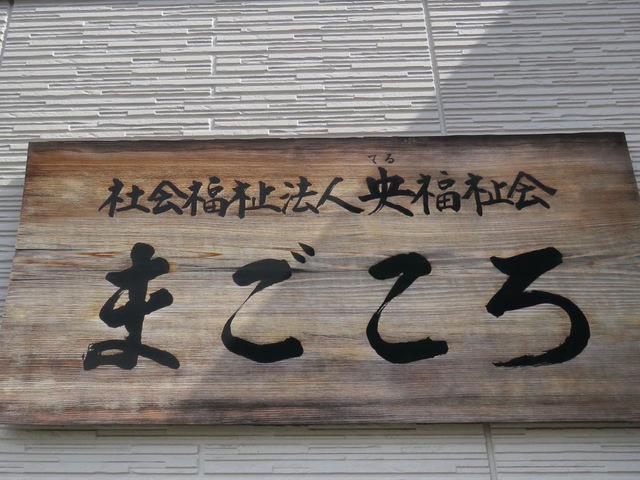 てる
社会福祉法人央福祉会
まごころ